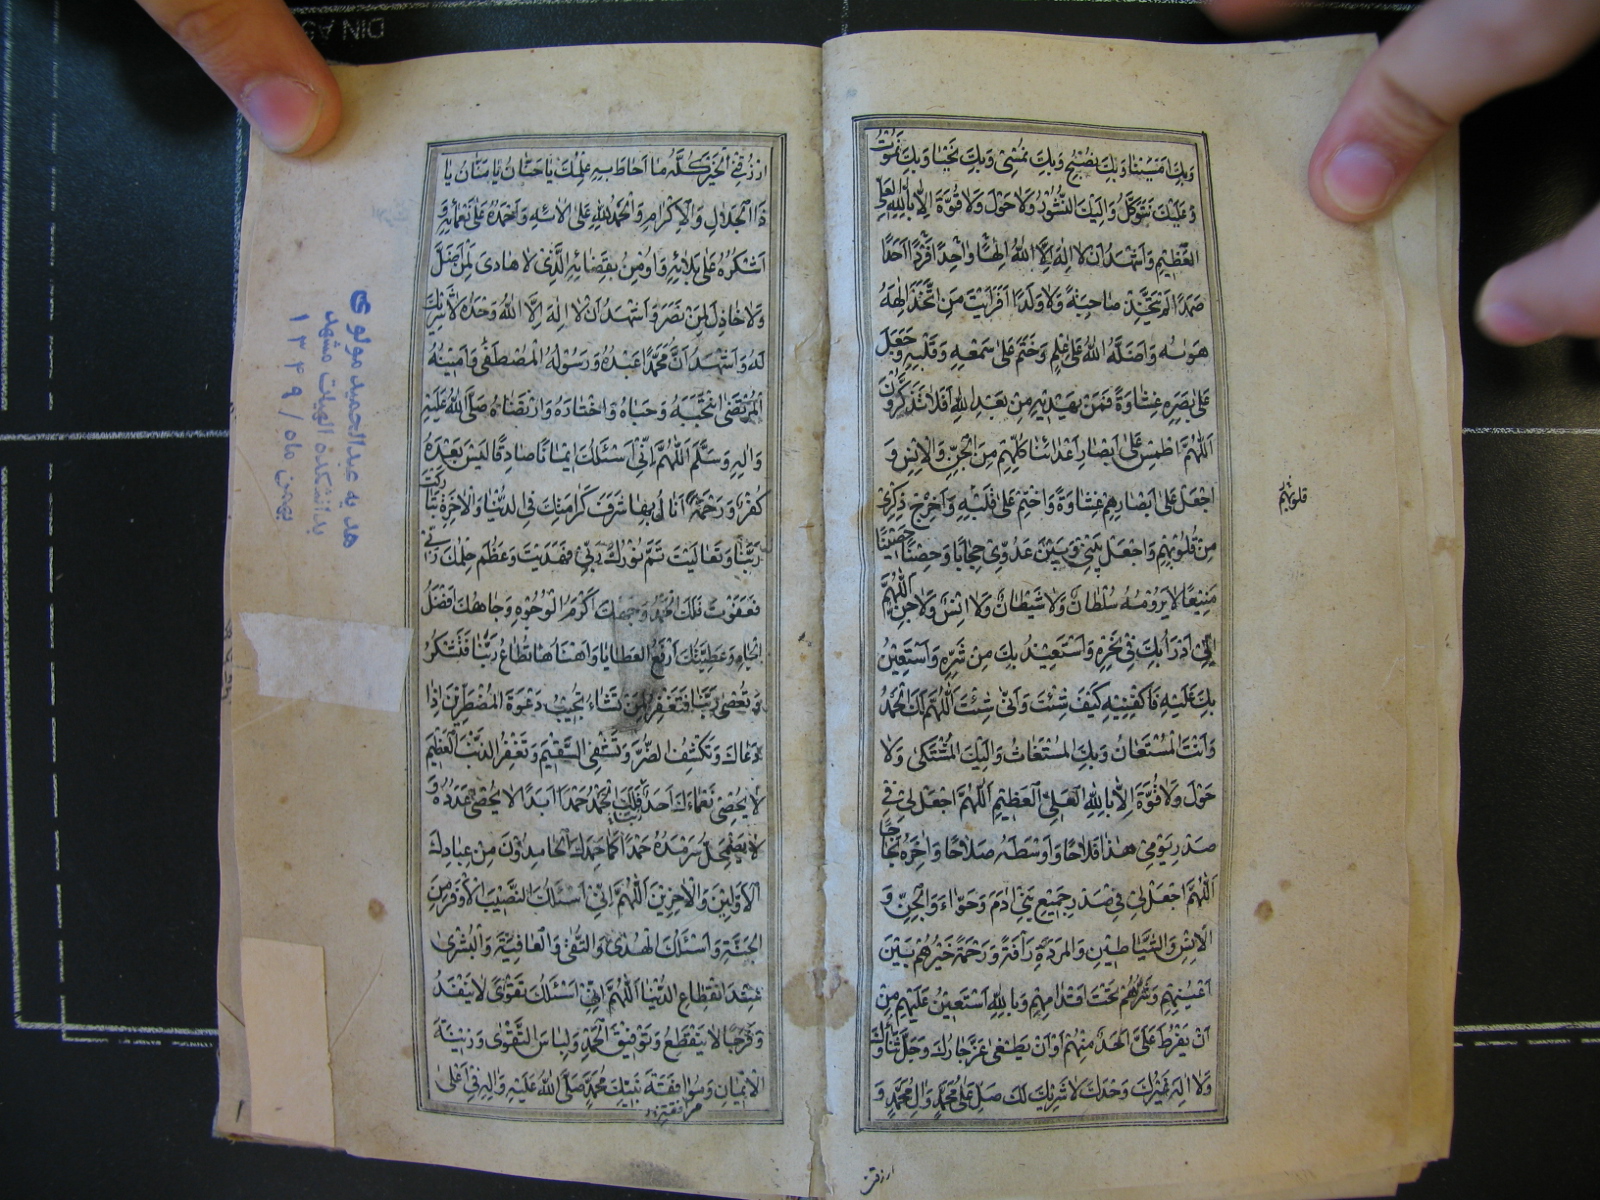 وَبِكَ اَمْسَيْنا وَبِكَ نُصْبِحُ وَبِكَ نُمْسى وَبِكَ نَحْيٰا وَبِكَ نَمُوتُ
وَ عَلَيْكَ نَتَوَكَّلُ وَاِلَيْكَ النُّشُوْرُ وَلا حَوْلَ وَلا قُوَّةَ اِلاّٰ بِاللهِ العَلِىِّ
الْعَظِيْمِ وَاَشْهَدُ اَنْ لا اِلٰهَ اِلَّا اللهُ اِلٰهًا وٰاحِدًا فَرْدًا اَحَدًا
صَمَدًا لَمْ يَتَّخِذْ صاحِبَةً وَلا وَلَدًا اَفَرَاَيْتَ مَنِ اتَّخَذَ اِلٰهَهُ
هَوٰيهُ وَاَضَلَّهُ اللهُ عَلى عِلْمٍ وَخَتَمَ عَلى سَمْعِهِ وَقَلْبِهِ وَجَعَلَ
عَلى بَصَرِهِ غِشاوَةً فَمَنْ يَهْدِيْهِ مِنْ بَعْدِ اللهِ اَفَلا تَذَكَّرُوْنَ
اَللّٰهُمَّ اطْمِسْ عَلى اَبْصارِ اَعْدائنا كُلِّهِمْ مِنَ الْجِنِّ وَالْاِنْسِ وَ
اجْعَلْ عَلى اَبْصارِهِمْ غِشاوَةً وَاخْتِمْ عَلى قَلْبِهِ وَاَخْرِجْ ذِكْرِى
قلوبهم
مِنْ قُلُوْبِهِمْ وَاجْعَلْ بَيْنِىْ وَبَيْنَ عَدُوِّىْ حِجابًا وَحِصْنًا حَصِيْنًا
مَنِيْعًا لا يَرُوْمُهُ سُلْطانٌ وَلا شَيْطانٌ وَلا اِنْسٌ وَلا جِنٌّ اَللّٰهُمَّ
اِنّى اَدْرَاُ بِكَ فى نَحْرِهِ وَاَسْتَعِيْذُ بِكَ مِنْ شَرِّهِ وَاَسْتَعِيْنُ
بِكَ عَلَيْهِ فَاكْفِنِيْهِ كَيْفَ شِئْتَ وَاَنّى شِئْتَ اَللّٰهُمَّ لَكَ الْحَمْدُ
وَاَنْتَ الْمُسْتَعانُ وَبِكَ الْمُسْتَغاثُ وَاِلَيْكَ الْمُشْتَكى وَلا
حَوْلَ وَلا قُوَّةَ اِلاّٰ بِاللهِ الْعَلِىِّ الْعَظِيْمِ اَللّٰهُمَّ اجْعَلْ لى فى
صَدْرِ يَوْمى هٰذا فَلاحًا وَاَوْسَطَهُ صَلاحًا وَاٰخِرَهُ نَجاحًا
اَللّٰهُمَّ اجْعَلْ لى فى صَدْرِ جَمِيْعِ بَنى اٰدَمَ وَحَوّاءَ وَالْجِنِّ وَ
الْاِنْسِ وَالشَّياطِيْنِ وَالْمَرَدَةِ رَاْفَةً وَرَحْمَةً خَيْرُهُمْ بَيْنَ
اَعْيُنِهِمْ وَشَرُّهُمْ تَحْتَ اَقْدامِهِمْ وَبِاللهِ اَسْتَعِيْنُ عَلَيْهِمْ مِنْ
اَنْ يَفْرُطَ عَلَىَّ اَحَدٌ مِنْهُمْ اَوْ اَنْ يَطْغى عَزَّ جارُكَ وَجَلَّ ثَناؤُكَ
وَلا اِلٰهَ غَيْرُكَ وَحْدَكَ لا شَرِيْكَ لَكَ صَلِّ عَلى مُحَمَّدٍ وَاٰلِ مُحَمَّدٍ وَ
ارزقنى
ارْزُقْنى الْخَيْرَ كُلَّهُ ما اَحاطَ بِهِ عِلْمُكَ يا حَنّانُ يا مَنّانُ يا
ذَا الْجَلالِ وَالْاِكْرامِ وَالْحَمْدُ لِلّهِ عَلى اٰلائِهِ وَاَحْمَدُهُ عَلى نَعْمائِهِ وَ
اَشْكُرُهُ عَلى بَلائِهِ وَاُومِنُ بِقَضائِهِ الَّذِىْ لا هادِىَ لِمَنْ اَضَلَّ
وَلا خاذِلَ لِمَنْ نَصَرَ وَاَشْهَدُ اَنْ لا اِلٰهَ اِلَّا اللهُ وَحْدَهُ لا شَرِيْكَ
لَهُ وَاَشْهَدُ اَنَّ مُحَمَّدًا عَبْدُهُ وَرَسُوْلُهُ الْمُصْطَفى وَاَمِيْنُهُ
الْمُرْتَضى انْتَجَبَهُ وَحَباهُ وَاخْتارَهُ وَارْتَضاهُ صَلَّى اللهُ عَلَيْهِ
وَاٰلِهِ وَسَلَّمَ اَللّٰهُمَّ اِنّى اَسْئَلُكَ اِيْمانًا صادِقًا لَيْسَ بَعْدَهُ
كُفْرٌ وَ رَحْمَةً اَنالُ بِها شَرَفَ كَرامَتِكَ فِى الدُّنْيا وَالْاٰخِرَةِ تَبارَكْتَ
رَبَّنا وَتَعالَيْتَ تَمَّ نُوْرُكَ رَبّى فَهَدَيْتَ وَعَظُمَ حِلْمُكَ رَبّى
فَعَفَوْتَ فَلَكَ الْحَمْدُ وَجْهُكَ اَكْرَمُ الْوُجُوْهِ وَجاهُكَ اَفْضَلُ
الْجاهِ وَعَطِيَّتُكَ اَرْفَعُ الْعَطايا وَاَهْنَاُها تُطاعُ رَبَّنا فَتَشْكُرُ
وَ تُعْصى رَبَّنا فَتَغْفِرُ لِمَنْ تَشاءُ تُجِيْبُ دَعْوَةَ الْمُضْطَرِّيْنَ اِذا
دَعاكَ وَتَكْشِفُ الضُّرَّ وَتَشْفِى السَّقِيْمَ وَتَغْفِرُ الذَّنْبَ الْعَظِيْمَ
لا يُحْصى نَعْماءَكَ اَحَدٌ فَلَكَ الْحَمْدُ حَمْدًا اَبَدًا لا يُحْصى عَدَدُهُ وَ
لا يَضْمَحِلُّ سَرْمَدُهُ حَمْدًا كَما حَمِدَكَ الْحامِدُوْنَ مِنْ عِبادِكَ
الْاَوَّلِيْنَ وَالْاٰخِرِيْنَ اَللّٰهُمَّ اِنّى اَسْئَلُكَ النَّصِيْبَ الْاَوْفَرَ مِنَ
الْجَنَّةِ وَاَسْئَلُكَ الْهُدى وَالتُّقى وَالْعافِيَةَ وَالْبُشْرى
عِنْدَ انْقِطاعِ الدُّنْيا اَللّٰهُمَّ اِنّى اَسْئَلُكَ تَقْوًى لا يَنْفَدُ
وَ فَرَجًا لا يَنْقَطِعُ وَتَوْفِيْقَ الْحَمْدِ وَلِباسَ التَّقْوى وَزِيْنَةَ
الْاِيْمانِ وَمُوافَقَةَ نَبِيِّكَ مُحَمَّدٍ صَلَّى اللهُ عَلَيْهِ وَاٰلِهِ فى اَعْلى
مرافقة
هدیه عبدالحمید مولوی
بدانشکده الهیات مشهد
بهمن ماه / ۱۳۴۹
۱
DIN A5